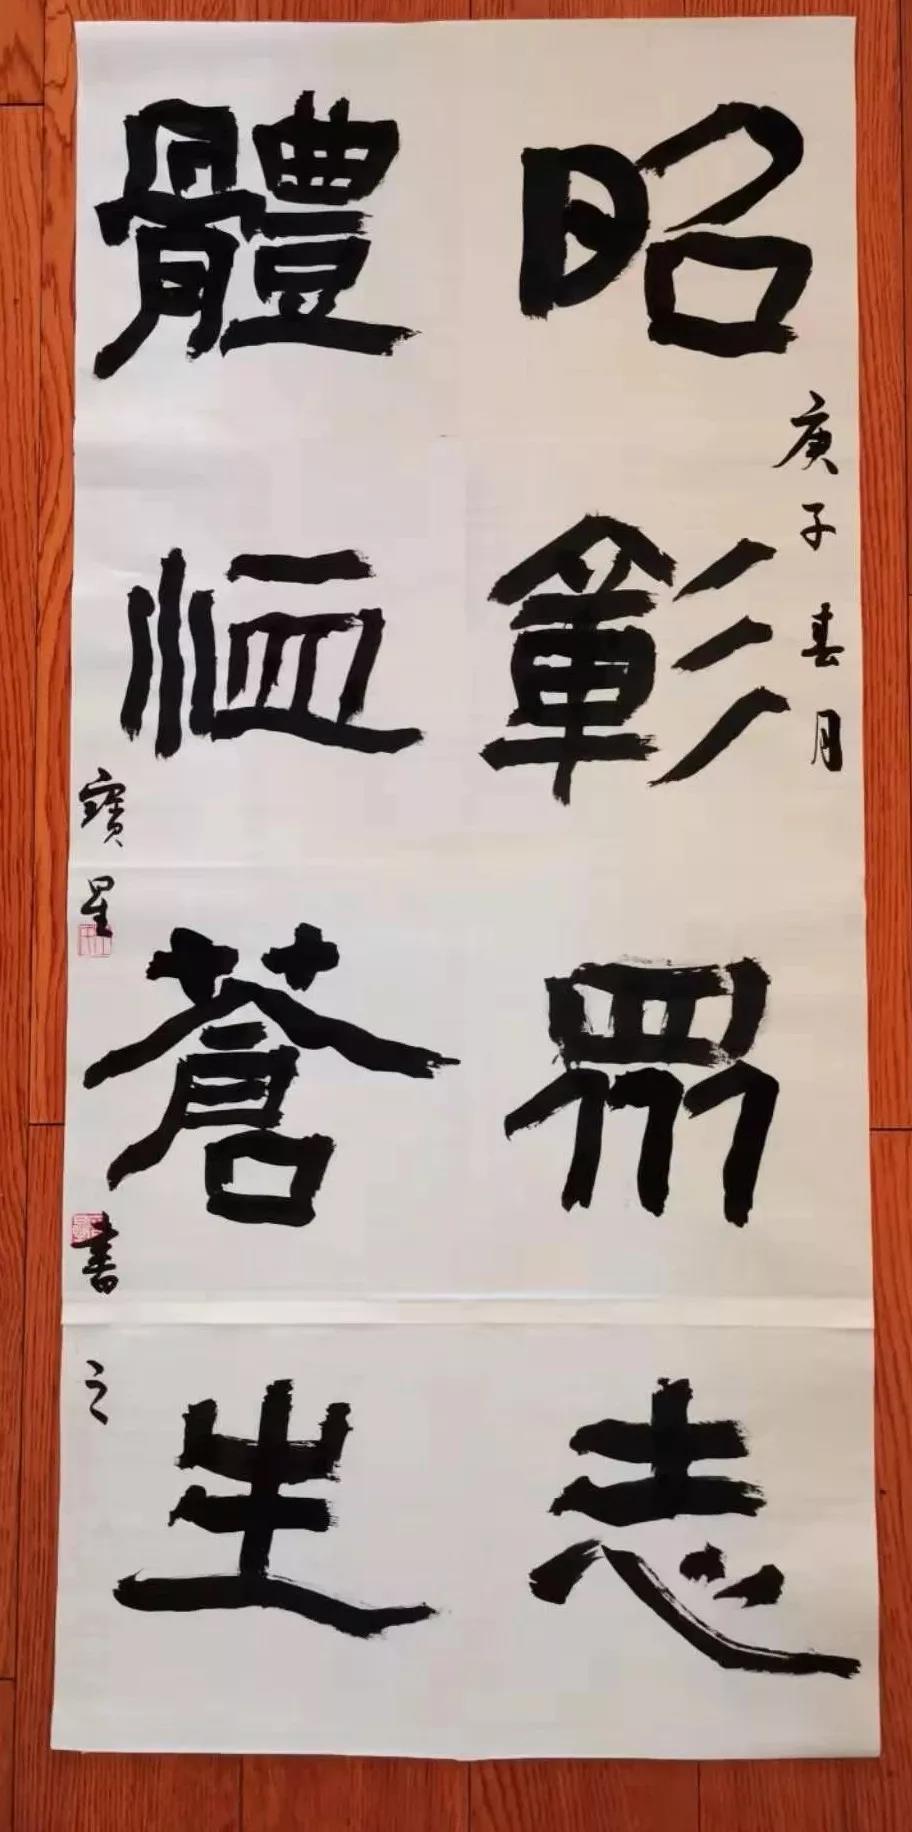 昭彰眾志
庚子春月
體恤蒼生
寶星書之